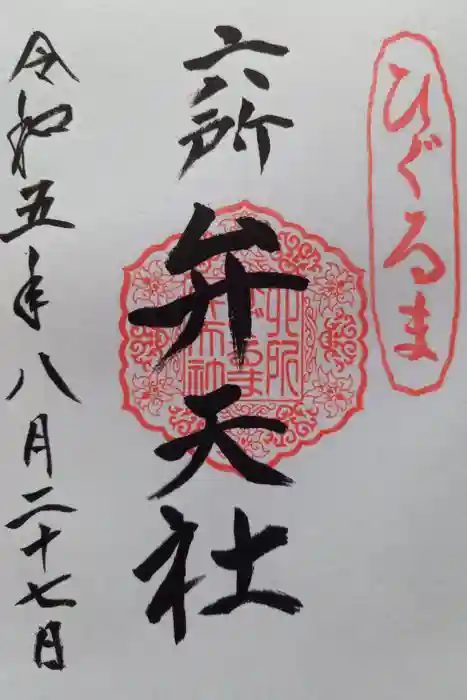 ひぐるま
六所
弁天社
令和五年八月二十七日